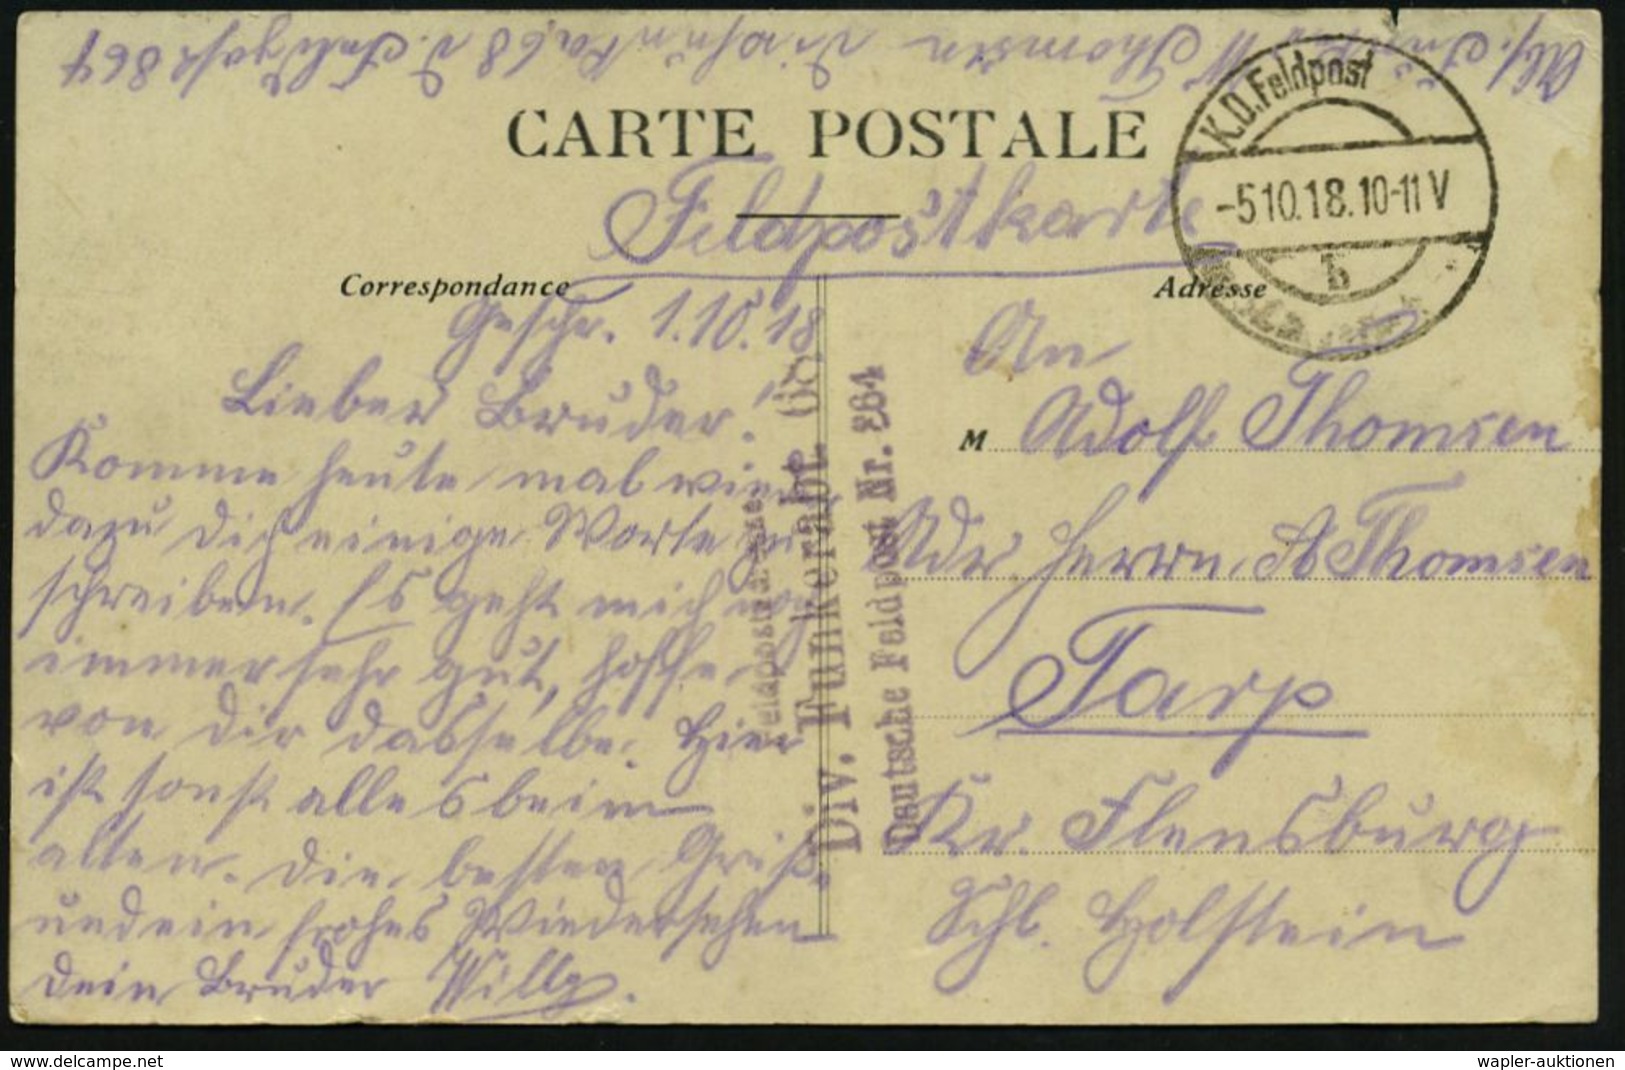 Abs. Funker W Thomsen Div. Funka. 68 D. Feldpost 864
CARTE POSTALE
Feldpostkarte
K.D. Feldpost
-5.10.18.10-11 V
b
Correspondance
Adresse
Geschr. 1.10.18
Lieber Bruder!
Komme heute mal wieder
dazu Dir einige Worte zu
schreiben. Es geht mich noch
immer sehr gut, hoffe
von dir dasselbe. Hier
ist sonst alles beim
alten. Die besten Grüße
und ein frohes Wiedersehen
Dein Bruder Willy.
Div. Funkerabt. 68
Deutsche Feldpost Nr. 864
An
M Adolf Thomsen
Adr. Herrn A Thomsen
Tarp
Kr. Flensburg
Schl. Holstein
www.delcampe.net
wapler-auktionen